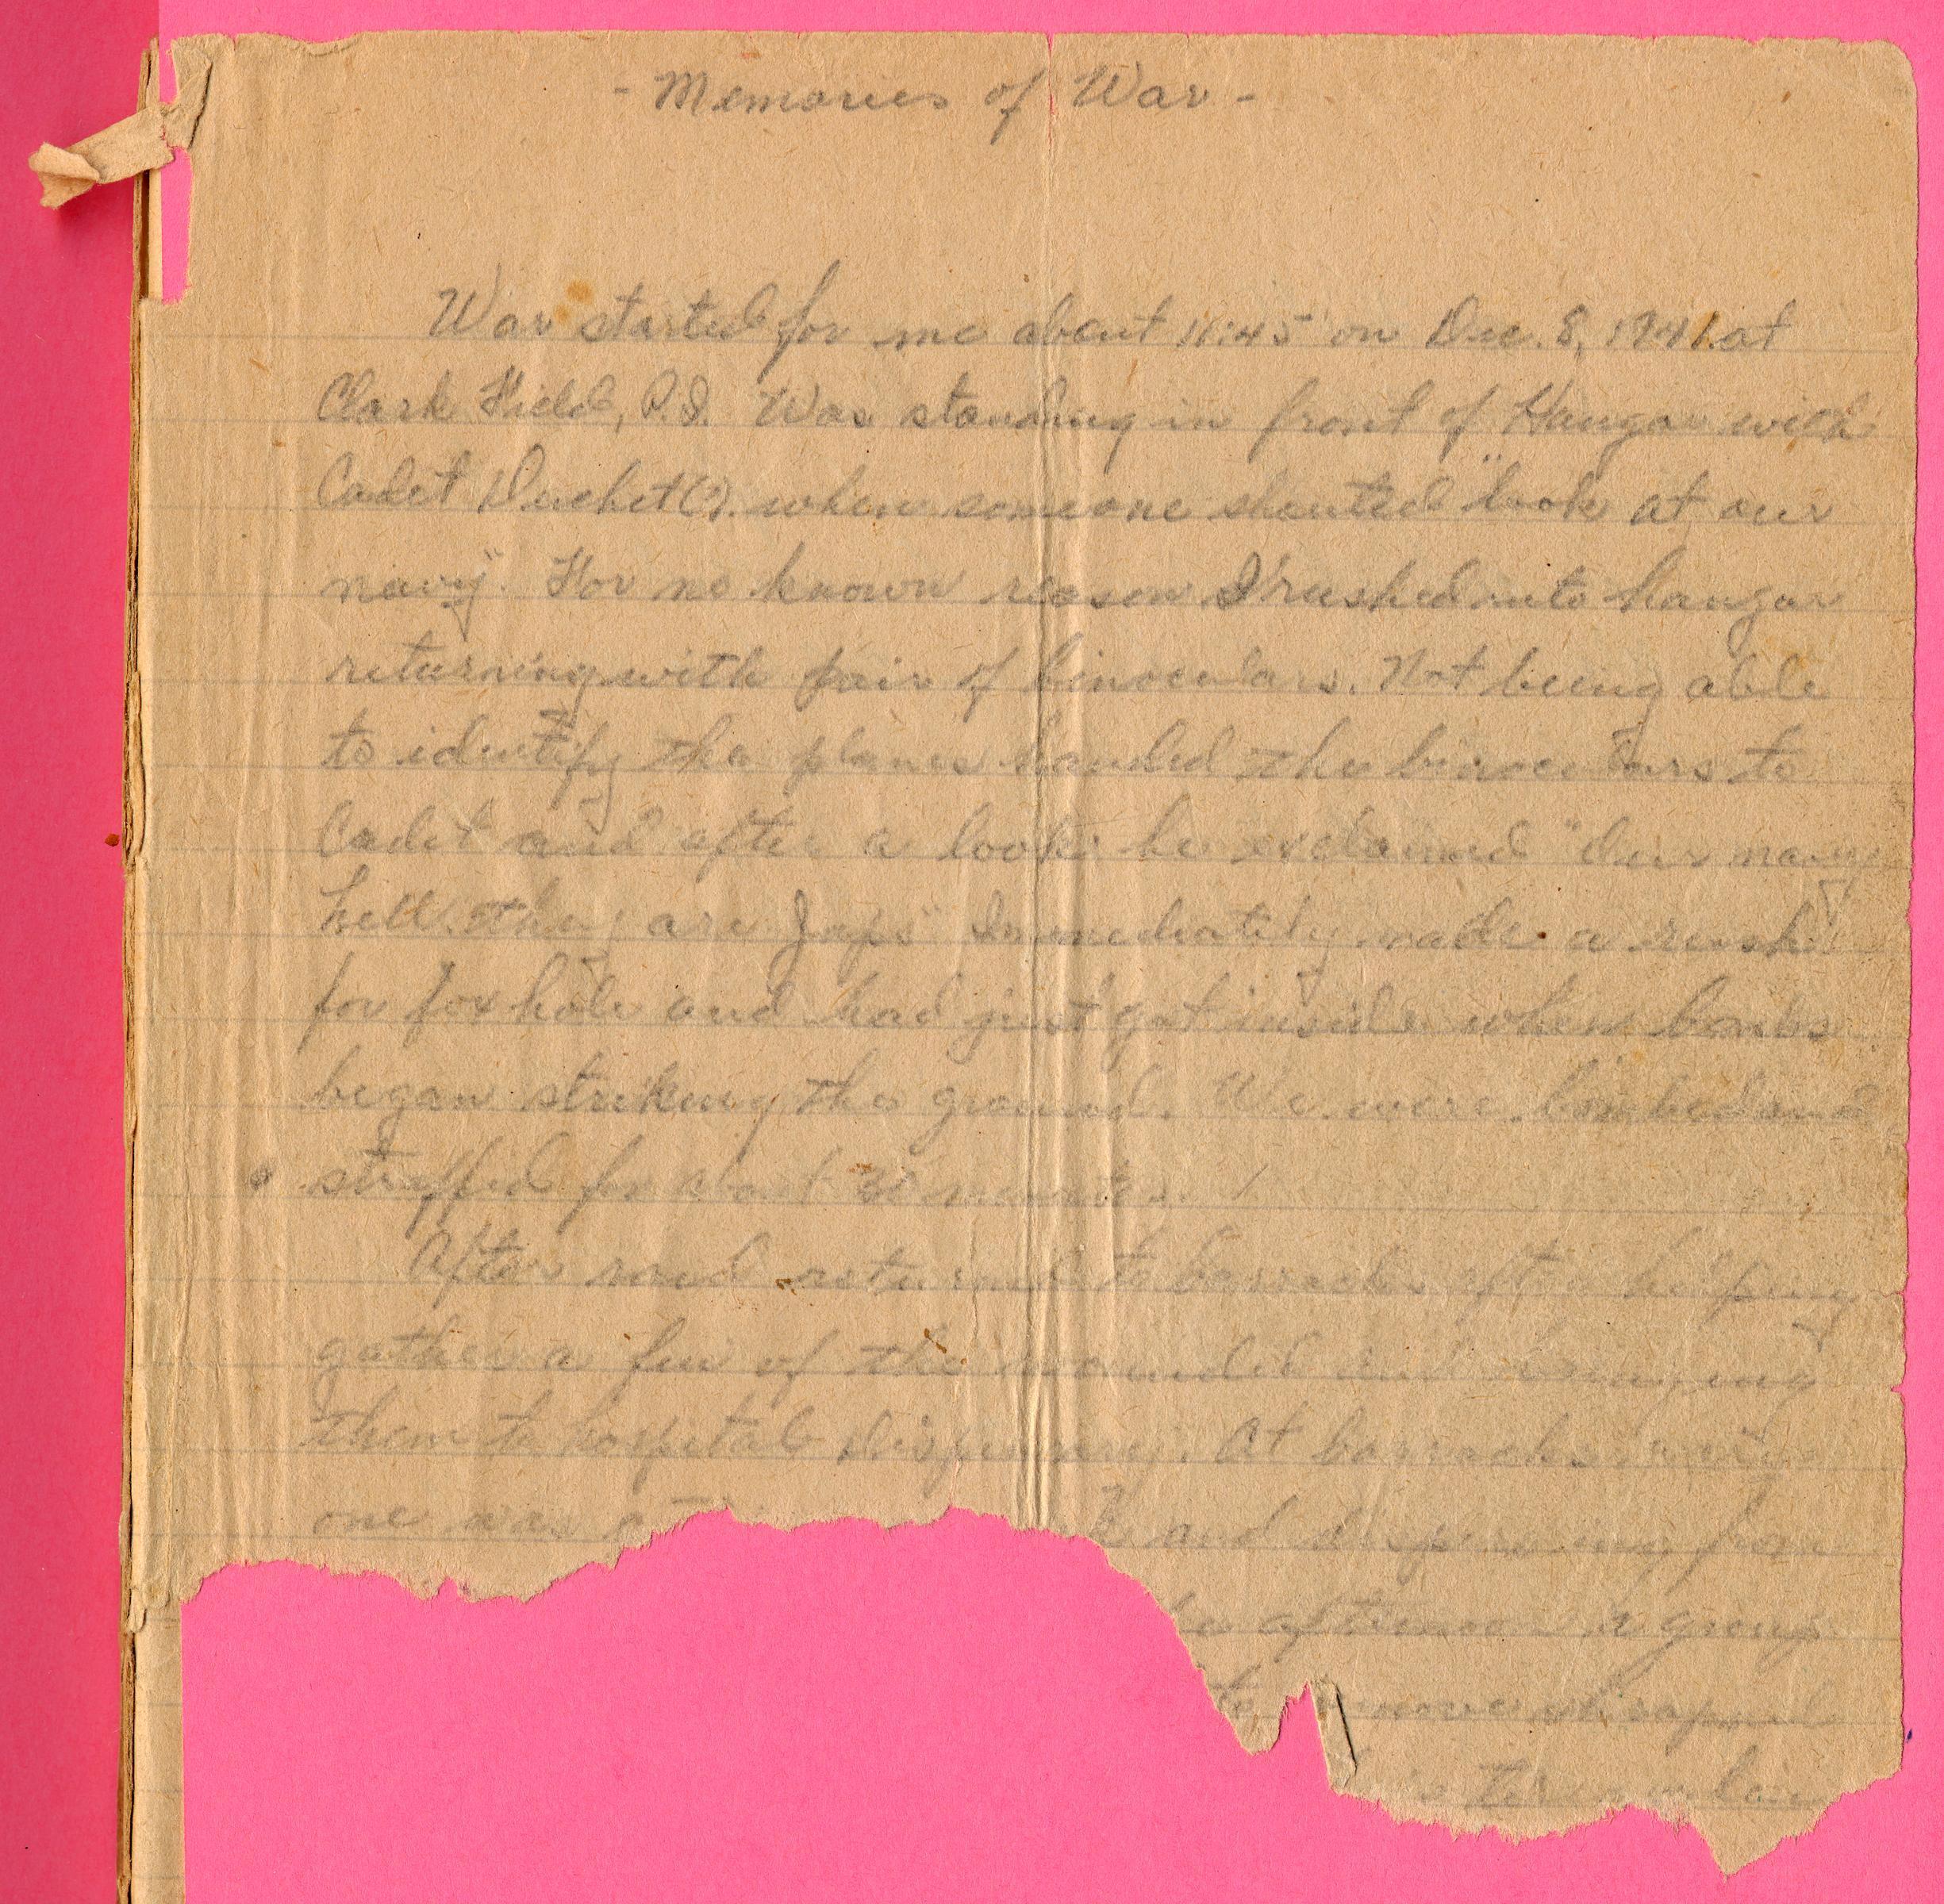 - Memories of War -
War started for me about 11:45 on Dec. 8, 1941 at
Clark Field, P.I. Was standing in front of Hangar with
Cadet Ducket(?). when someone shouted "look at our
navy". For no known reason I rushed into hangar
returning with pair of binoculars. Not being able
to identify the planes handed the binoculars to
Cadet and after a look he exclaimed "Our navy
hell they are Japs" Immediately made a rush
for fox hole and had just got inside when bombs
began striking the ground. We were bombed and
straffed for about 30 minutes.
After raid returned to barracks after helping
gather a few of the wounded and
them to hospital dispensary. At barracks
one was and dispersing from
afternoon a group
to remove shrapnel